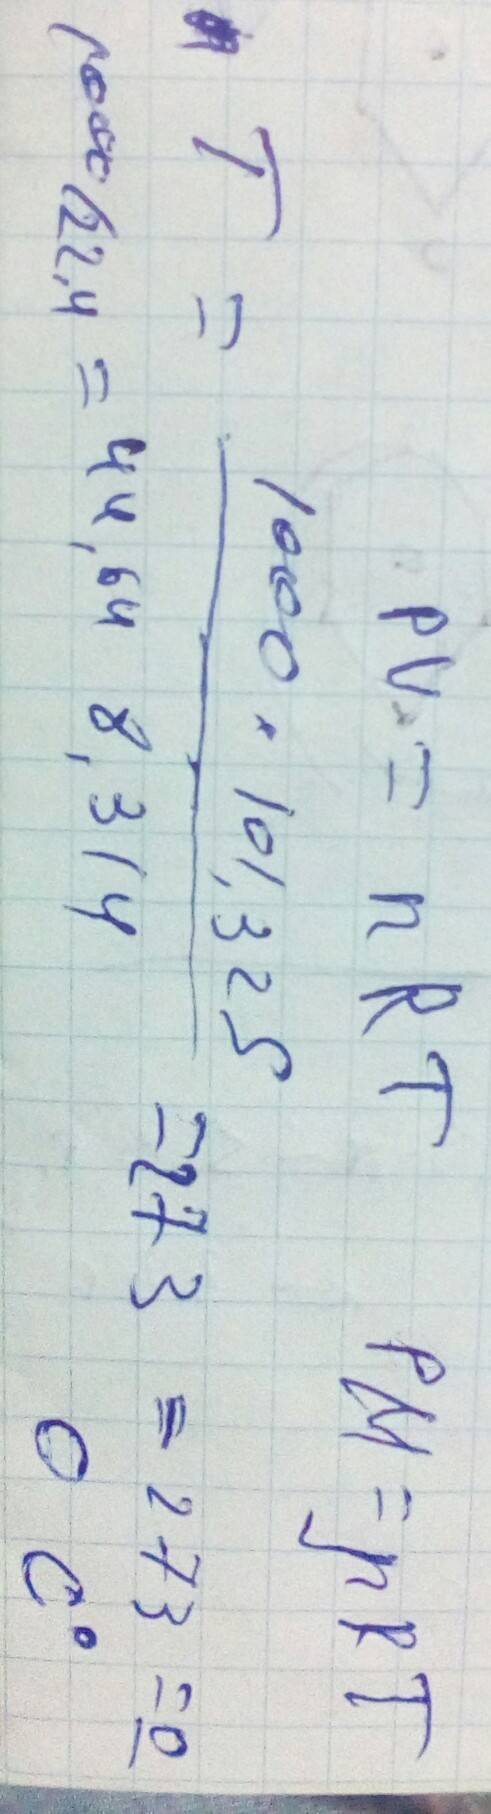 PV = nRT PM = ρRT
T = 1000 · 101,325
44,64 8,314 = 273 = 273 = 0
1000/22,4 = 0 C°